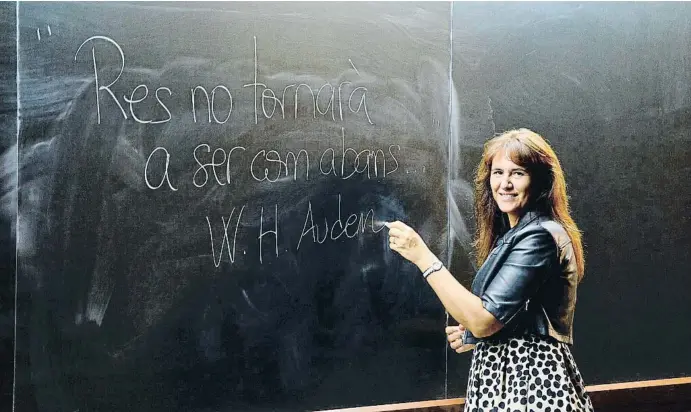 "Res no tornarà
a ser com abans...
W. H. Auden